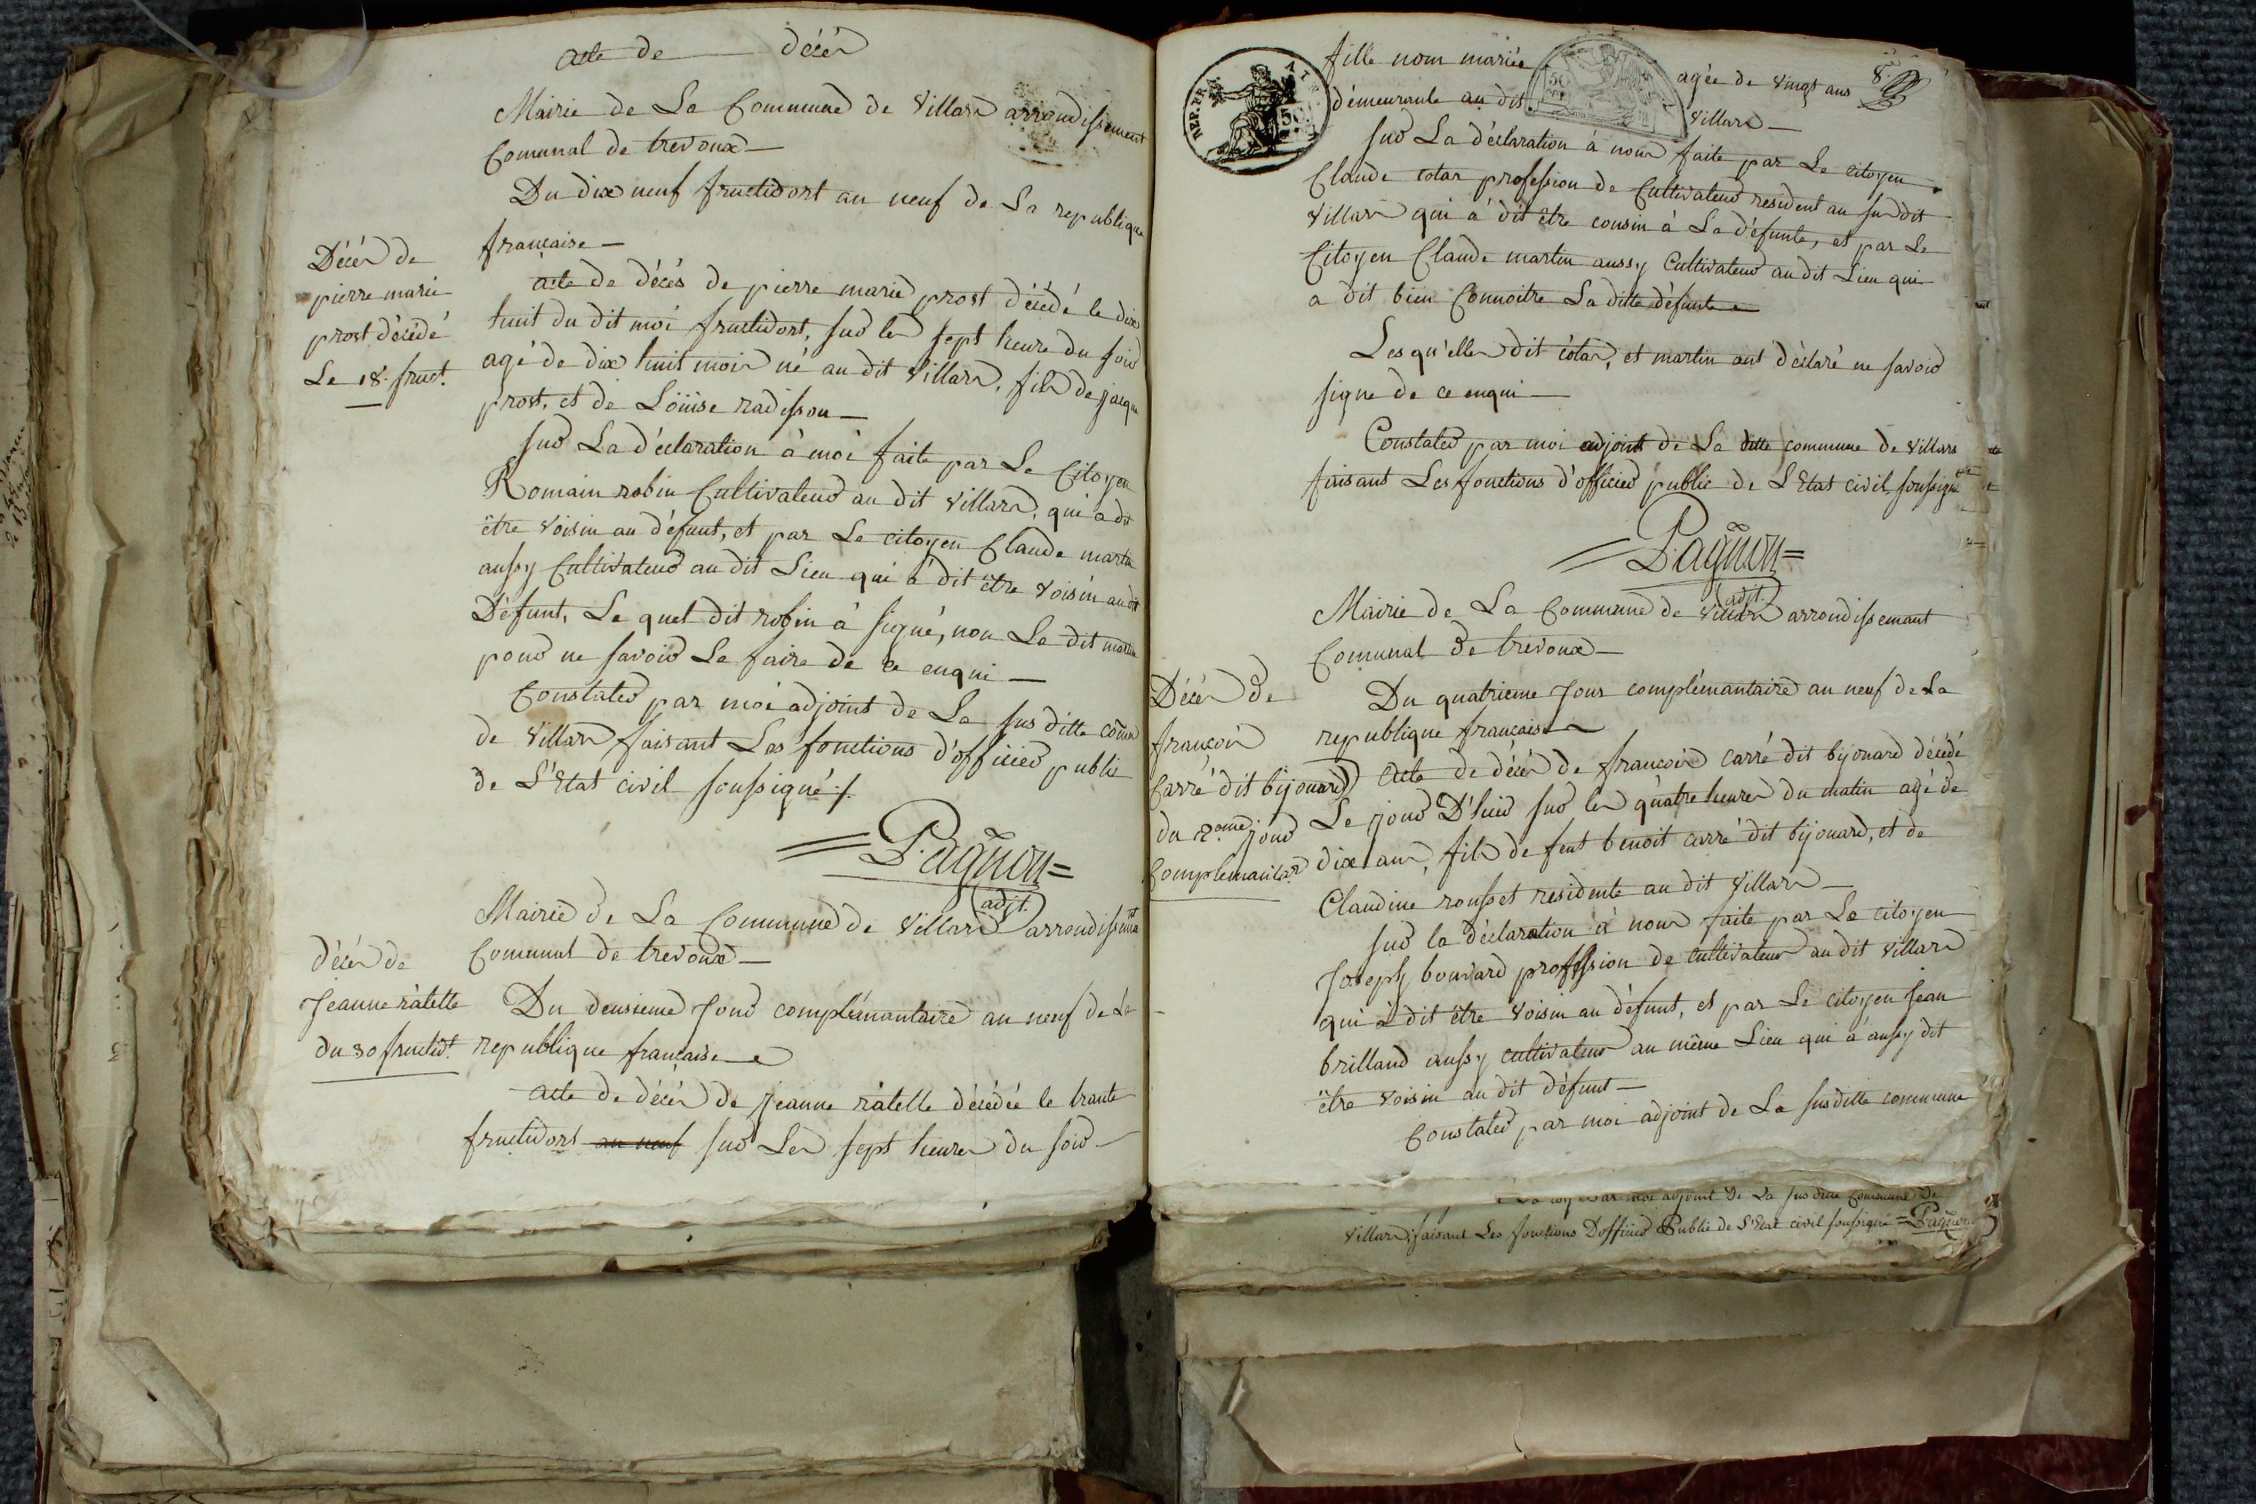 acte de décès
Mairie de La Commune de Villars arrondissement
Comunal de trevoux
Du dix neuf fructidort an neuf de La republique
française
Décès de
pierre marie
prost décédé
Le 18. fruct.
acte de décès de pierre marie prost décédé le dix
huit du dit moi fructidort, sur les sept heure du soir
agé de dix huit mois né au dit Villars, fils de jacque
prost, et de Loüise radisson
sur La déclaration à moi faite par Le Citoyen
Romain robin Cultivateur au dit Villars, qui a dit
être voisin au défunt, et par Le citoyen Claude martin
aussy Cultivateur au dit Lieu qui a dit être voisin au dit
Défunt, Le quel dit robin à signé, non Le dit martin
pour ne savoir Le faire de ce enqui
Constater par moi adjoint de La sus ditte comm
de Villars faisant Les fonctions d'officier public
de L'Etat civil soussigné ./.
=Pagnon=
adjt.
Mairie de La Commune de Villars arrondissemant
Comunal de trevoux
décès de
Jeanne râtelle
du 30 fructidt.
Du deusieme Jour complémantaire an neuf de La
republique française
acte de décès de Jeanne râtelle décédée le trante
fructidort an neuf sur Les sept heures du soir
fille nom mariée agée de vingt ans
8.
démeurante au dit Villars
REP. FRA
50
sur La déclaration à nous faite par Le citoyen
Claude cotar profession de Cultivateur resident au sus dit
Villars qui à dit être cousin à La défunte, et par Le
Citoyen Claude martin aussy Cultivateur au dit Lieu qui
a dit bien Connoitre La ditte défunte
Lesqu'elles dit cotar, et martin ont déclaré ne savoir
signe de ce enqui
Constater par moi adjoint de La ditte commune de Villars
faisant Les fonctions d'officier public de L'Etat civil soussigné
=Pagnon=
adjt.
Mairie de La Commune de Villars arrondissemant
Comunal de trevoux
Décès de
françois
Carré dit bijouard
du 3ome jour
Complemantar
Du quatrieme Jour complémantaire an neuf de La
republique française
acte de décès de françois carré dit bijouard décédé
Le jour D'hier sur les quatre heures du matin agé de
dix ans, fils de feut benoit carré dit bijouard, et de
Claudine rousset residente au dit Villars
sur la déclaration à nous faite par Le citoyen
Joseph bouvard profession de cultivateur au dit Villars
qui à dit être voisin au défunt, et par Le citoyen Jean
brilland aussy cultivateur au même Lieu qui à aussy dit
être voisin au dit défunt
Constater par moi adjoint de La susditte commune
par moi adjoint de La sus ditte Commune de
Villars faisant Les fonctions D'officier Public de L'Etat civil soussigné =Pagnon